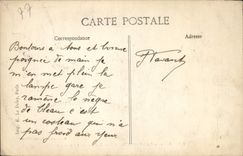 77
CARTE POSTALE
Correspondance
Adresse
Bonjour à tous et bonne
poignée de main je
m'en met plein la
lampe gare je
ramène le negre
de l'eau c'est
un costeau qui n'a
pas froid aux yeux